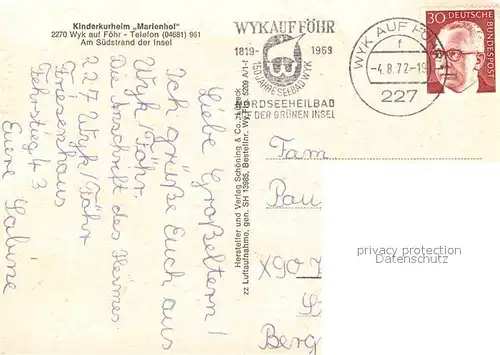 Kinderkurheim „Marienhof"
2270 Wyk auf Föhr - Telefon (04681) 961
Am Südstrand der Insel
Liebe Großeltern!
Ich grüße Euch aus
Wyk Föhr.
Die Anschrift des Heimes
227 Wyk/Föhr
Friesenhaus
Fehrstieg 43
Eure Sabine
Hersteller und Verlag Schöning & Co., Lübeck
zz Luftaufnahme, gen. SH 13985, Bestellnr. Wy
5209 A/1-f
WYK AUF FÖHR
1819- 1969
150 JAHRE SEEBAD WYK
NORDSEEHEILBAD
DER GRÜNEN INSEL
WYK AUF FÖHR
f
-4.8.72-19
227
30
DEUTSCHE
BUNDESPOST
Fam
Pau
X90
Berg
privacy protection